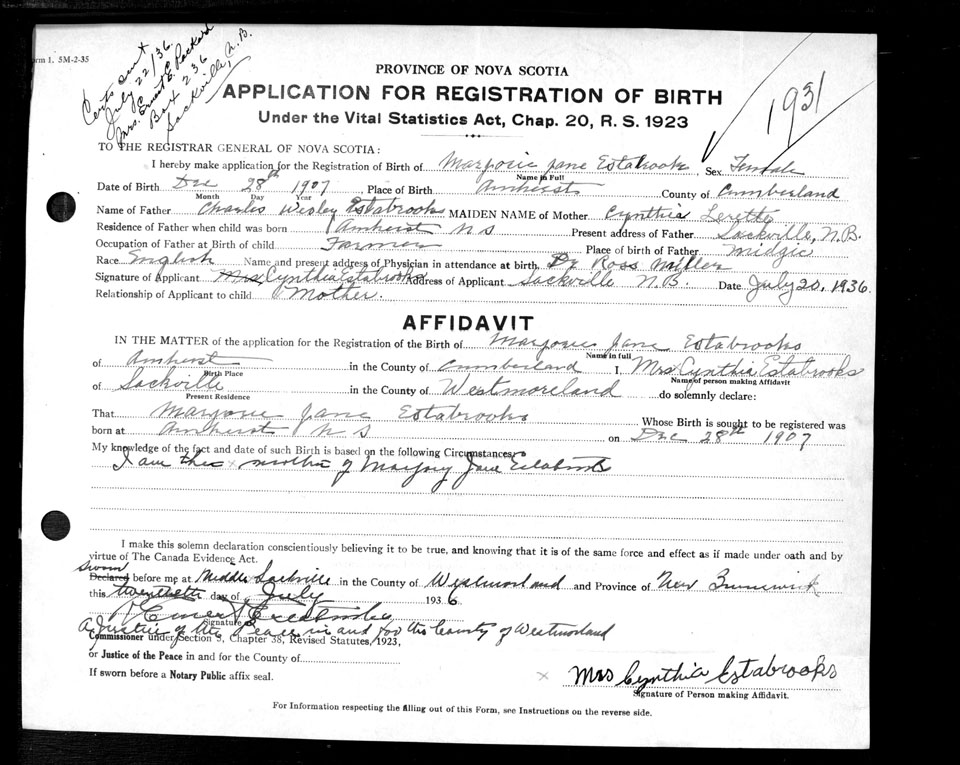 orm 1. 5M-2-35
Certs sent
July 22/36
Mrs. Ernest E. Packard
Box 236
Sackville, N.B.
1931
PROVINCE OF NOVA SCOTIA
APPLICATION FOR REGISTRATION OF BIRTH
Under the Vital Statistics Act, Chap. 20, R. S. 1923
TO THE REGISTRAR GENERAL OF NOVA SCOTIA:
I hereby make application for the Registration of Birth of Marjorie Jane Estabrooks Sex Female
Name in Full
Date of Birth Dec 28th 1907, Place of Birth Amherst County of Cumberland
Month Day Year
Name of Father Charles Wesley Estabrooks MAIDEN NAME of Mother Cynthia Lerette
Residence of Father when child was born Amherst N S Present address of Father Sackville, N.B.
Occupation of Father at Birth of child Farmer Place of birth of Father Midgic
Race English Name and present address of Physician in attendance at birth Dr Ross Miller
Signature of Applicant Mrs Cynthia Estabrooks Address of Applicant Sackville N.B. Date July 20, 1936.
Relationship of Applicant to child Mother.
AFFIDAVIT
IN THE MATTER of the application for the Registration of the Birth of Marjorie Jane Estabrooks
Name in full
of Amherst in the County of Cumberland I, Mrs Cynthia Estabrooks
Birth Place Name of person making Affidavit
of Sackville in the County of Westmoreland do solemnly declare:
Present Residence
That Marjorie Jane Estabrooks Whose Birth is sought to be registered was
born at Amherst N S on Dec 28th 1907
My knowledge of the fact and date of such Birth is based on the following Circumstances:
I am the x mother of Marjory Jane Estabrooks
I make this solemn declaration conscientiously believing it to be true, and knowing that it is of the same force and effect as if made under oath and by
virtue of The Canada Evidence Act.
Sworn
Declared before me at Middle Sackville in the County of Westmorland and Province of New Brunswick
this twentieth day of July 1936.
Signature
A Justice of the Peace in and for the County of Westmorland
Commissioner under Section 5, Chapter 38, Revised Statutes, 1923,
or Justice of the Peace in and for the County of
If sworn before a Notary Public affix seal.
x Mrs Cynthia Estabrooks
Signature of Person making Affidavit.
For Information respecting the filling out of this Form, see Instructions on the reverse side.